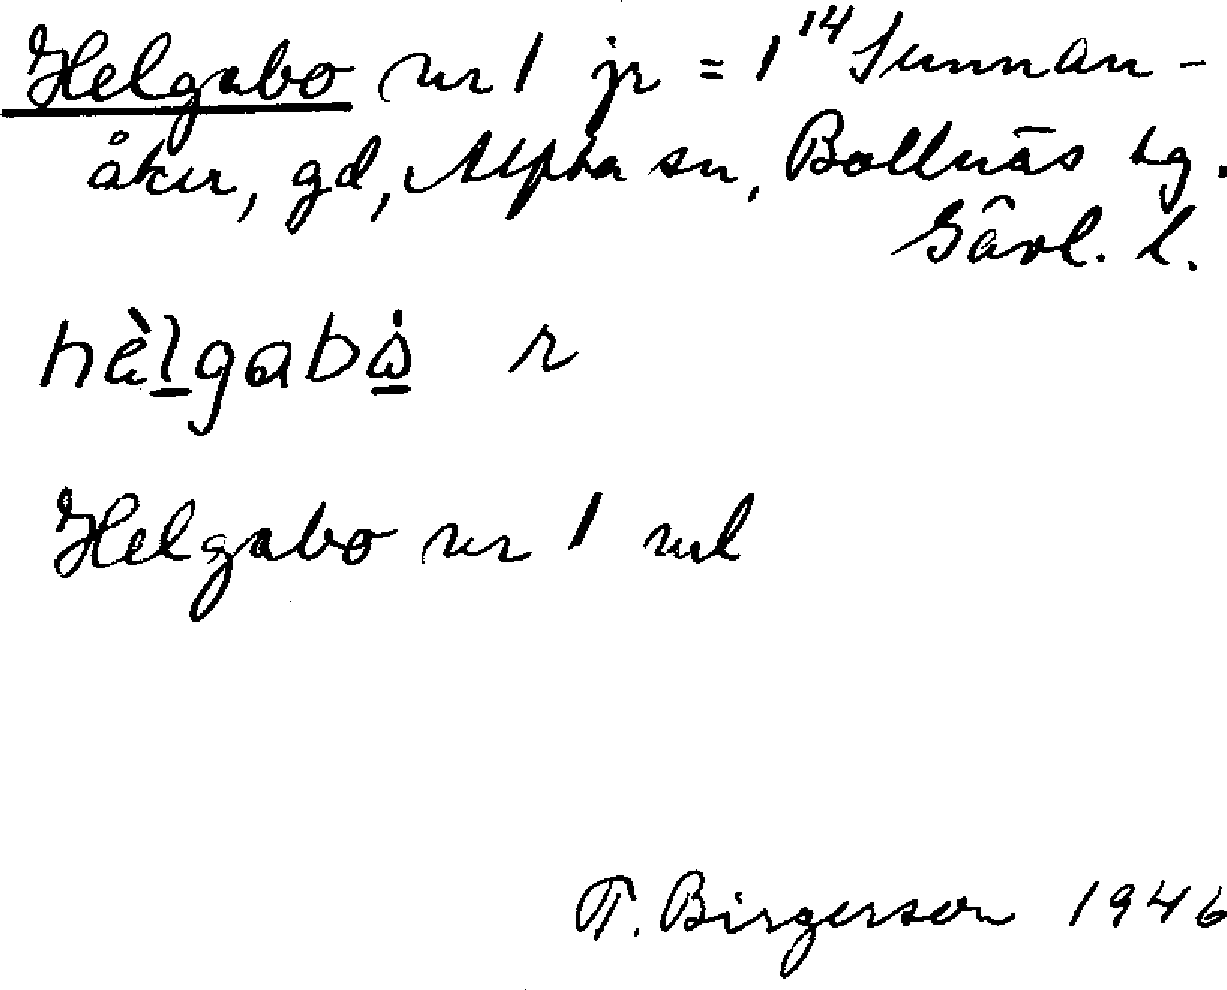 Helgabo nr 1 jr = 1¹⁴ Sunnan-
åker, gd, Alfta sn, Bollnäs tg.
Gävl. l.
hèlgabò r
Helgabo nr 1 ml
T. Birgerson 1946